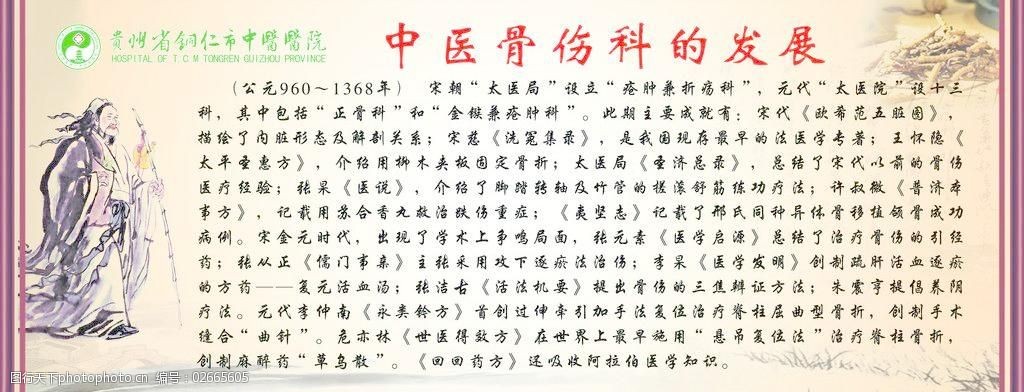 贵州省铜仁市中醫醫院
HOSPITAL OF T C M TONGREN GUIZHOU PROVINCE
中医骨伤科的发展
(公元960～1368年) 宋朝“太医局”设立“疮肿兼折疡科”，元代“太医院”设十三
科，其中包括“正骨科”和“金镞兼疮肿科”。此期主要成就有：宋代《欧希范五脏图》，
描绘了内脏形态及解剖关系；宋慈《洗冤集录》，是我国现存最早的法医学专著；王怀隐《
太平圣惠方》，介绍用柳木夹板固定骨折；太医局《圣济总录》，总结了宋代以前的骨伤
医疗经验；张杲《医说》，介绍了脚踏转轴及竹管的搓滚舒筋练功疗法；许叔微《普济本
事方》，记载用苏合香丸救治跌伤重症；《夷坚志》记载了邢氏同种异体骨移植颌骨成功
病例。宋金元时代，出现了学术上争鸣局面，张元素《医学启源》总结了治疗骨伤的引经
药；张从正《儒门事亲》主张采用攻下逐瘀法治伤；李杲《医学发明》创制疏肝活血逐瘀
的方药——复元活血汤；张洁古《活法机要》提出骨伤的三焦辩证方法；朱震亨提倡养阴
疗法。元代李仲南《永类钤方》首创过伸牵引加手法复位治疗脊柱屈曲型骨折，创制手术
缝合“曲针”。危亦林《世医得效方》在世界上最早施用“悬吊复位法”治疗脊柱骨折，
创制麻醉药“草乌散”。《回回药方》还吸收阿拉伯医学知识。
图行天下photophoto.cn 编号：02665605